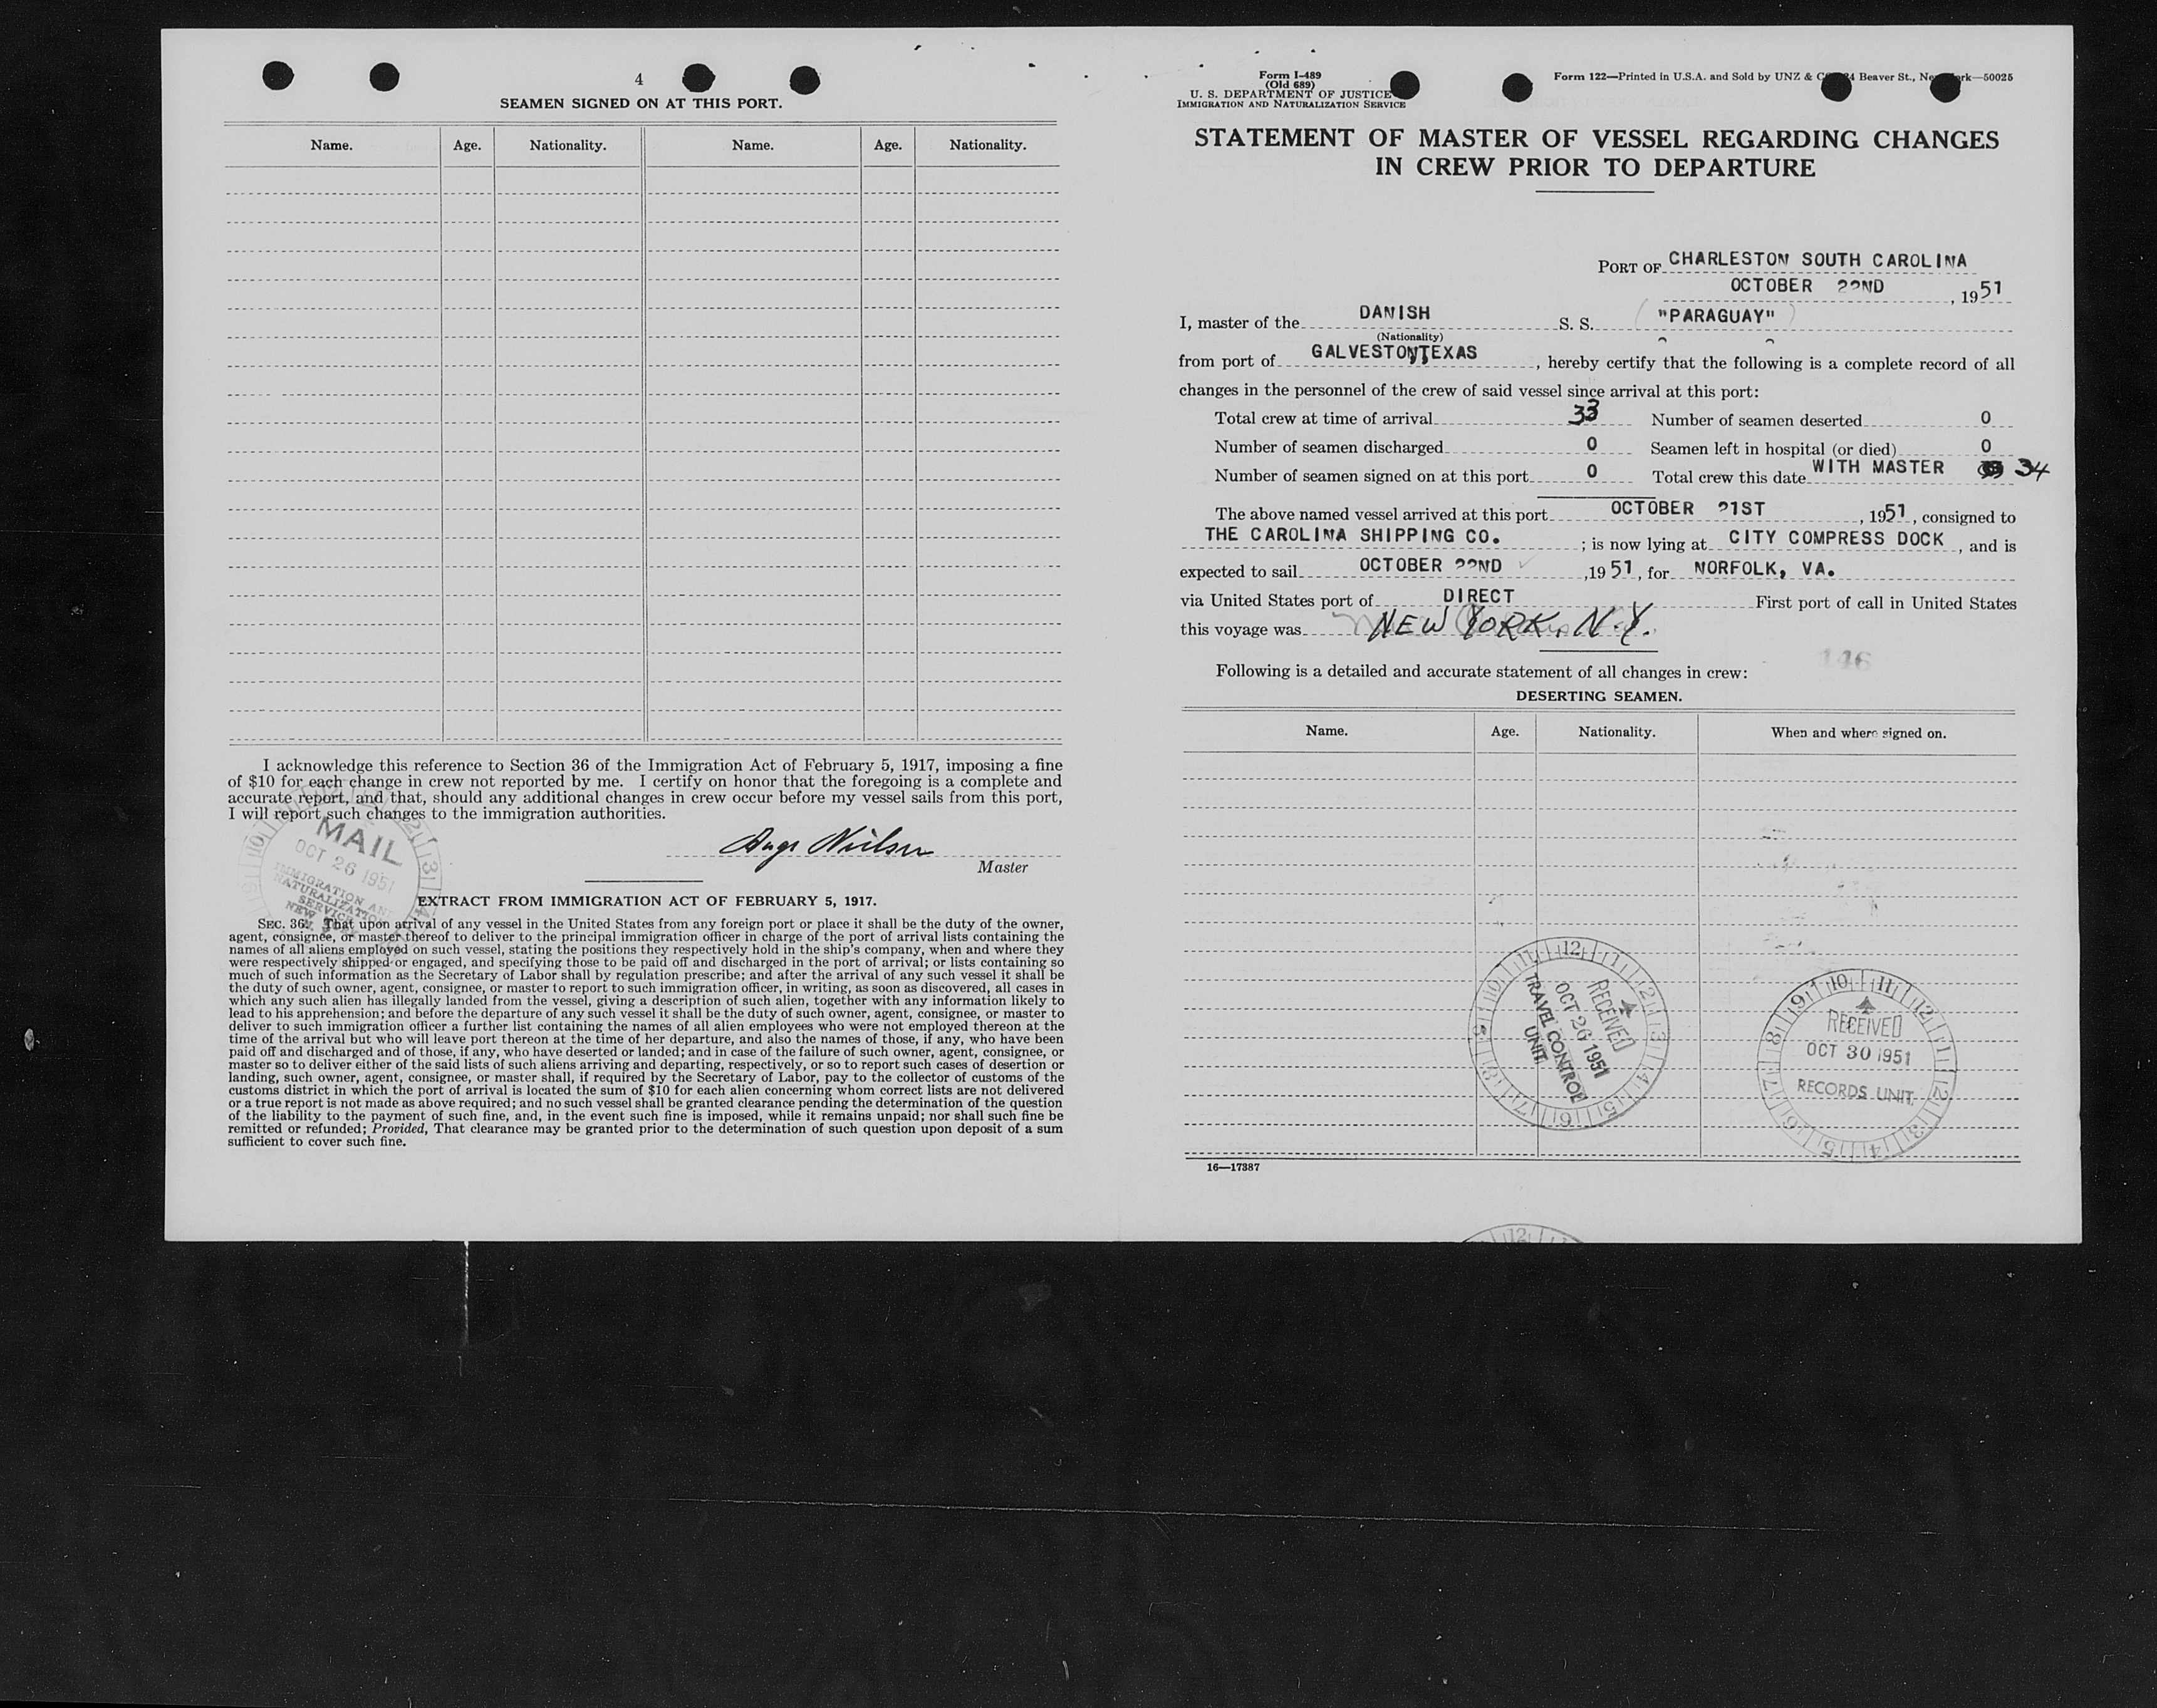 4
SEAMEN SIGNED ON AT THIS PORT.
Name. Age. Nationality. Name. Age. Nationality.
I acknowledge this reference to Section 36 of the Immigration Act of February 5, 1917, imposing a fine
of $10 for each change in crew not reported by me. I certify on honor that the foregoing is a complete and
accurate report, and that, should any additional changes in crew occur before my vessel sails from this port,
I will report such changes to the immigration authorities.
MAIL
OCT 26 1951
IMMIGRATION AND
NATURALIZATION
SERVICE
NEW
Nielsen
Master
EXTRACT FROM IMMIGRATION ACT OF FEBRUARY 5, 1917.
SEC. 36. That upon arrival of any vessel in the United States from any foreign port or place it shall be the duty of the owner,
agent, consignee, or master thereof to deliver to the principal immigration officer in charge of the port of arrival lists containing the
names of all aliens employed on such vessel, stating the positions they respectively hold in the ship's company, when and where they
were respectively shipped or engaged, and specifying those to be paid off and discharged in the port of arrival; or lists containing so
much of such information as the Secretary of Labor shall by regulation prescribe; and after the arrival of any such vessel it shall be
the duty of such owner, agent, consignee, or master to report to such immigration officer, in writing, as soon as discovered, all cases in
which any such alien has illegally landed from the vessel, giving a description of such alien, together with any information likely to
lead to his apprehension; and before the departure of any such vessel it shall be the duty of such owner, agent, consignee, or master to
deliver to such immigration officer a further list containing the names of all alien employees who were not employed thereon at the
time of the arrival but who will leave port thereon at the time of her departure, and also the names of those, if any, who have been
paid off and discharged and of those, if any, who have deserted or landed; and in case of the failure of such owner, agent, consignee, or
master so to deliver either of the said lists of such aliens arriving and departing, respectively, or so to report such cases of desertion or
landing, such owner, agent, consignee, or master shall, if required by the Secretary of Labor, pay to the collector of customs of the
customs district in which the port of arrival is located the sum of $10 for each alien concerning whom correct lists are not delivered
or a true report is not made as above required; and no such vessel shall be granted clearance pending the determination of the question
of the liability to the payment of such fine, and, in the event such fine is imposed, while it remains unpaid; nor shall such fine be
remitted or refunded; Provided, That clearance may be granted prior to the determination of such question upon deposit of a sum
sufficient to cover such fine.
Form I-489
(Old 689)
U. S. DEPARTMENT OF JUSTICE
IMMIGRATION AND NATURALIZATION SERVICE
Form 122—Printed in U.S.A. and Sold by UNZ & C 24 Beaver St., New York—50025
STATEMENT OF MASTER OF VESSEL REGARDING CHANGES
IN CREW PRIOR TO DEPARTURE
PORT OF CHARLESTON SOUTH CAROLINA
OCTOBER 22ND, 1951
I, master of the DANISH S. S. "PARAGUAY"
(Nationality)
from port of GALVESTON,TEXAS, hereby certify that the following is a complete record of all
changes in the personnel of the crew of said vessel since arrival at this port:
Total crew at time of arrival 33 Number of seamen deserted 0
Number of seamen discharged 0 Seamen left in hospital (or died) 0
Number of seamen signed on at this port 0 Total crew this date WITH MASTER 34
The above named vessel arrived at this port OCTOBER 21ST, 1951, consigned to
THE CAROLINA SHIPPING CO.; is now lying at CITY COMPRESS DOCK, and is
expected to sail OCTOBER 22ND ,1951, for NORFOLK, VA.
via United States port of DIRECT First port of call in United States
this voyage was NEW YORK, N.Y.
146
Following is a detailed and accurate statement of all changes in crew:
DESERTING SEAMEN.
Name. Age. Nationality. When and where signed on.
RECEIVED
OCT 26 1951
TRAVEL CONTROL
UNIT
RECEIVED
OCT 30 1951
RECORDS UNIT
16—17387